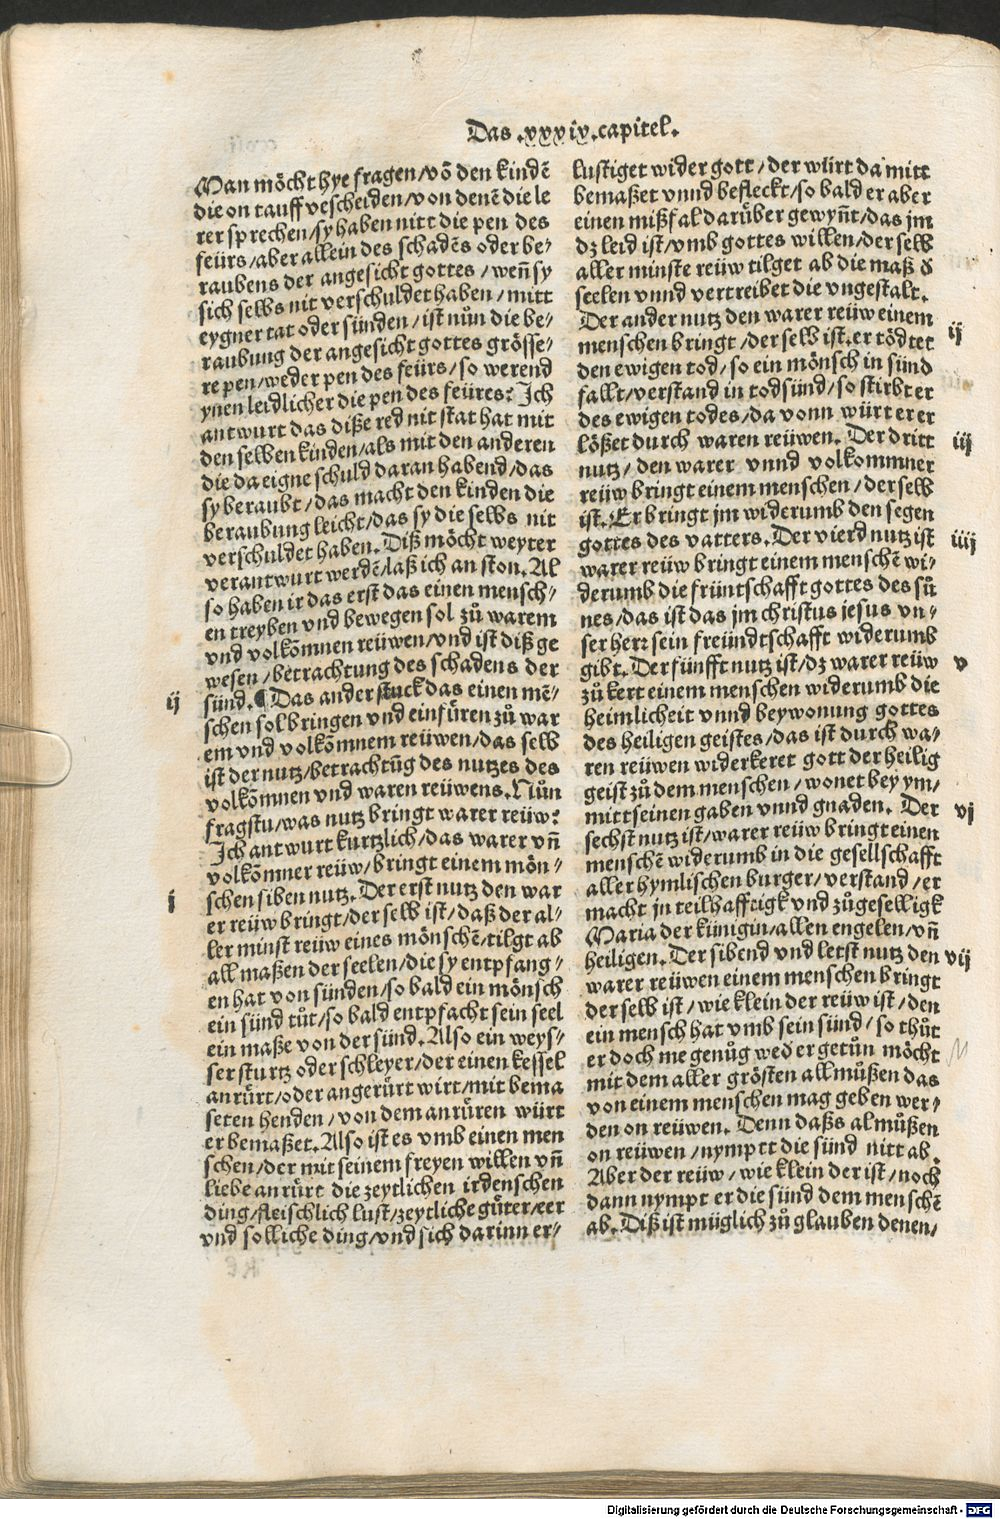 Das .xxxix. capitel.
Man möcht hye fragen/võ den kindẽ
die on tauff vescheiden/von denẽ die le
rer sprechen/sy haben nitt die pen des
feürs/aber allein des schadẽs oder be-
raubens der angesicht gottes/weñ sy
sich selbs nit verschuldet haben/mitt
eygner tat oder sünden/ist nůn die be-
raubung der angesicht gottes grösse-
re pen/weder pen des feürs/so werend
ynen leidlicher die pen des feüres? Ich
antwurt das diße red nit stat hat mit
den selben kinden/als mit den anderen
die da eigne schuld daran habend/das
sy beraubt/das macht den kinden die
beraubung leicht/das sy die selbs nit
verschuldet haben. Diß möcht weyter
verantwurt werdẽ/laß ich an ston. Al
so haben ir das erst das einen mensch-
en treyben vnd bewegen sol zů warem
vnd volkõmnen reüwen/vnd ist diß ge
wesen/betrachtung des schadens der
ij
sünd. ¶ Das ander stuck das einen mẽ-
schen sol bringen vnd einfüren zů war
em vnd volkõmnem reüwen/das selb
ist der nutz/betrachtũg des nutzes des
volkõmnen vnd waren reüwens. Nůn
fragstu/was nutz bringt warer reüw?
Ich antwurt kurtzlich/das warer vñ
volkõmner reüw/bringt einem mön-
schen siben nutz. Der erst nutz den war
i
er reüw bringt/der selb ist/daß der al-
ler minst reüw eines mönschẽ/tilgt ab
all maßen der seelen/die sy entpfang-
en hat von sünden/so bald ein mönsch
ein sünd tůt/so bald entpfacht sein seel
ein maße von der sünd. Also ein weys-
ser sturtz oder schleyer/der einen kessel
anrürt/oder angerürt wirt/mit bema
seten henden/von dem anrüren würt
er bemaßet. Also ist es vmb einen men
schen/der mit seinem freyen willen vñ
liebe anrürt die zeytlichen irdenschen
ding/fleischlich lust/zeytliche güter/eer
vnd solliche ding/vnd sich darinn er-
lustiget wider gott/der würt da mitt
bemaßet vnnd befleckt/so bald er aber
einen mißfal darüber gewyñt/das jm
dz leid ist/vmb gottes willen/der selb
aller minste reüw tilget ab die maß ð
seelen vnnd vertreibet die vngestalt.
Der ander nutz den warer reüw einem
ij
menschen bringt/der selb ist. er tödtet
den ewigen tod/so ein mönsch in sünd
fallt/verstand in todsünd/so stirbt er
des ewigen todes/da vonn würt er er
lößet durch waren reüwen. Der dritt
iij
nutz/den warer vnnd volkommner
reüw bringt einem menschen/der selb
ist. Er bringt jm widerumb den segen
gottes des vatters. Der vierd nutz ist
iiij
warer reüw bringt einem menschẽ wi-
derumb die früntschafft gottes des sů
nes/das ist das jm christus jesus vn-
ser herr sein freündtschafft widerumb
gibt. Der fünfft nutz ist/dz warer reüw
v
zů kert einem menschen widerumb die
heimlicheit vnnd beywonung gottes
des heiligen geistes/das ist durch wa-
ren reüwen widerkeret gott der heilig
geist zů dem menschen/wonet bey ym/
mitt seinen gaben vnnd gnaden. Der
vj
sechst nutz ist/warer reüw bringt einen
menschẽ widerumb in die gesellschafft
aller hymlischen burger/verstand/er
macht jn teilhafftigk vnd zůgeselligk
Maria der künigin/allen engelen/vñ
heiligen. Der sibend vnd letst nutz den
vij
warer reüwen einem menschen bringt
der selb ist/wie klein der reüw ist/den
ein mensch hat vmb sein sünd/so thůt
er doch me genůg weder getůn möcht
mit dem aller grösten allmůßen das
von einem menschen mag geben wer-
den on reüwen. Denn daßs almůßen
on reüwen/nymptt die sünd nitt ab.
Aber der reüw/wie klein der ist/noch
dann nympt er die sünd dem menschẽ
ab. Diß ist müglich zů glauben denen/
Digitalisierung gefördert durch die Deutsche Forschungsgemeinschaft - DFG